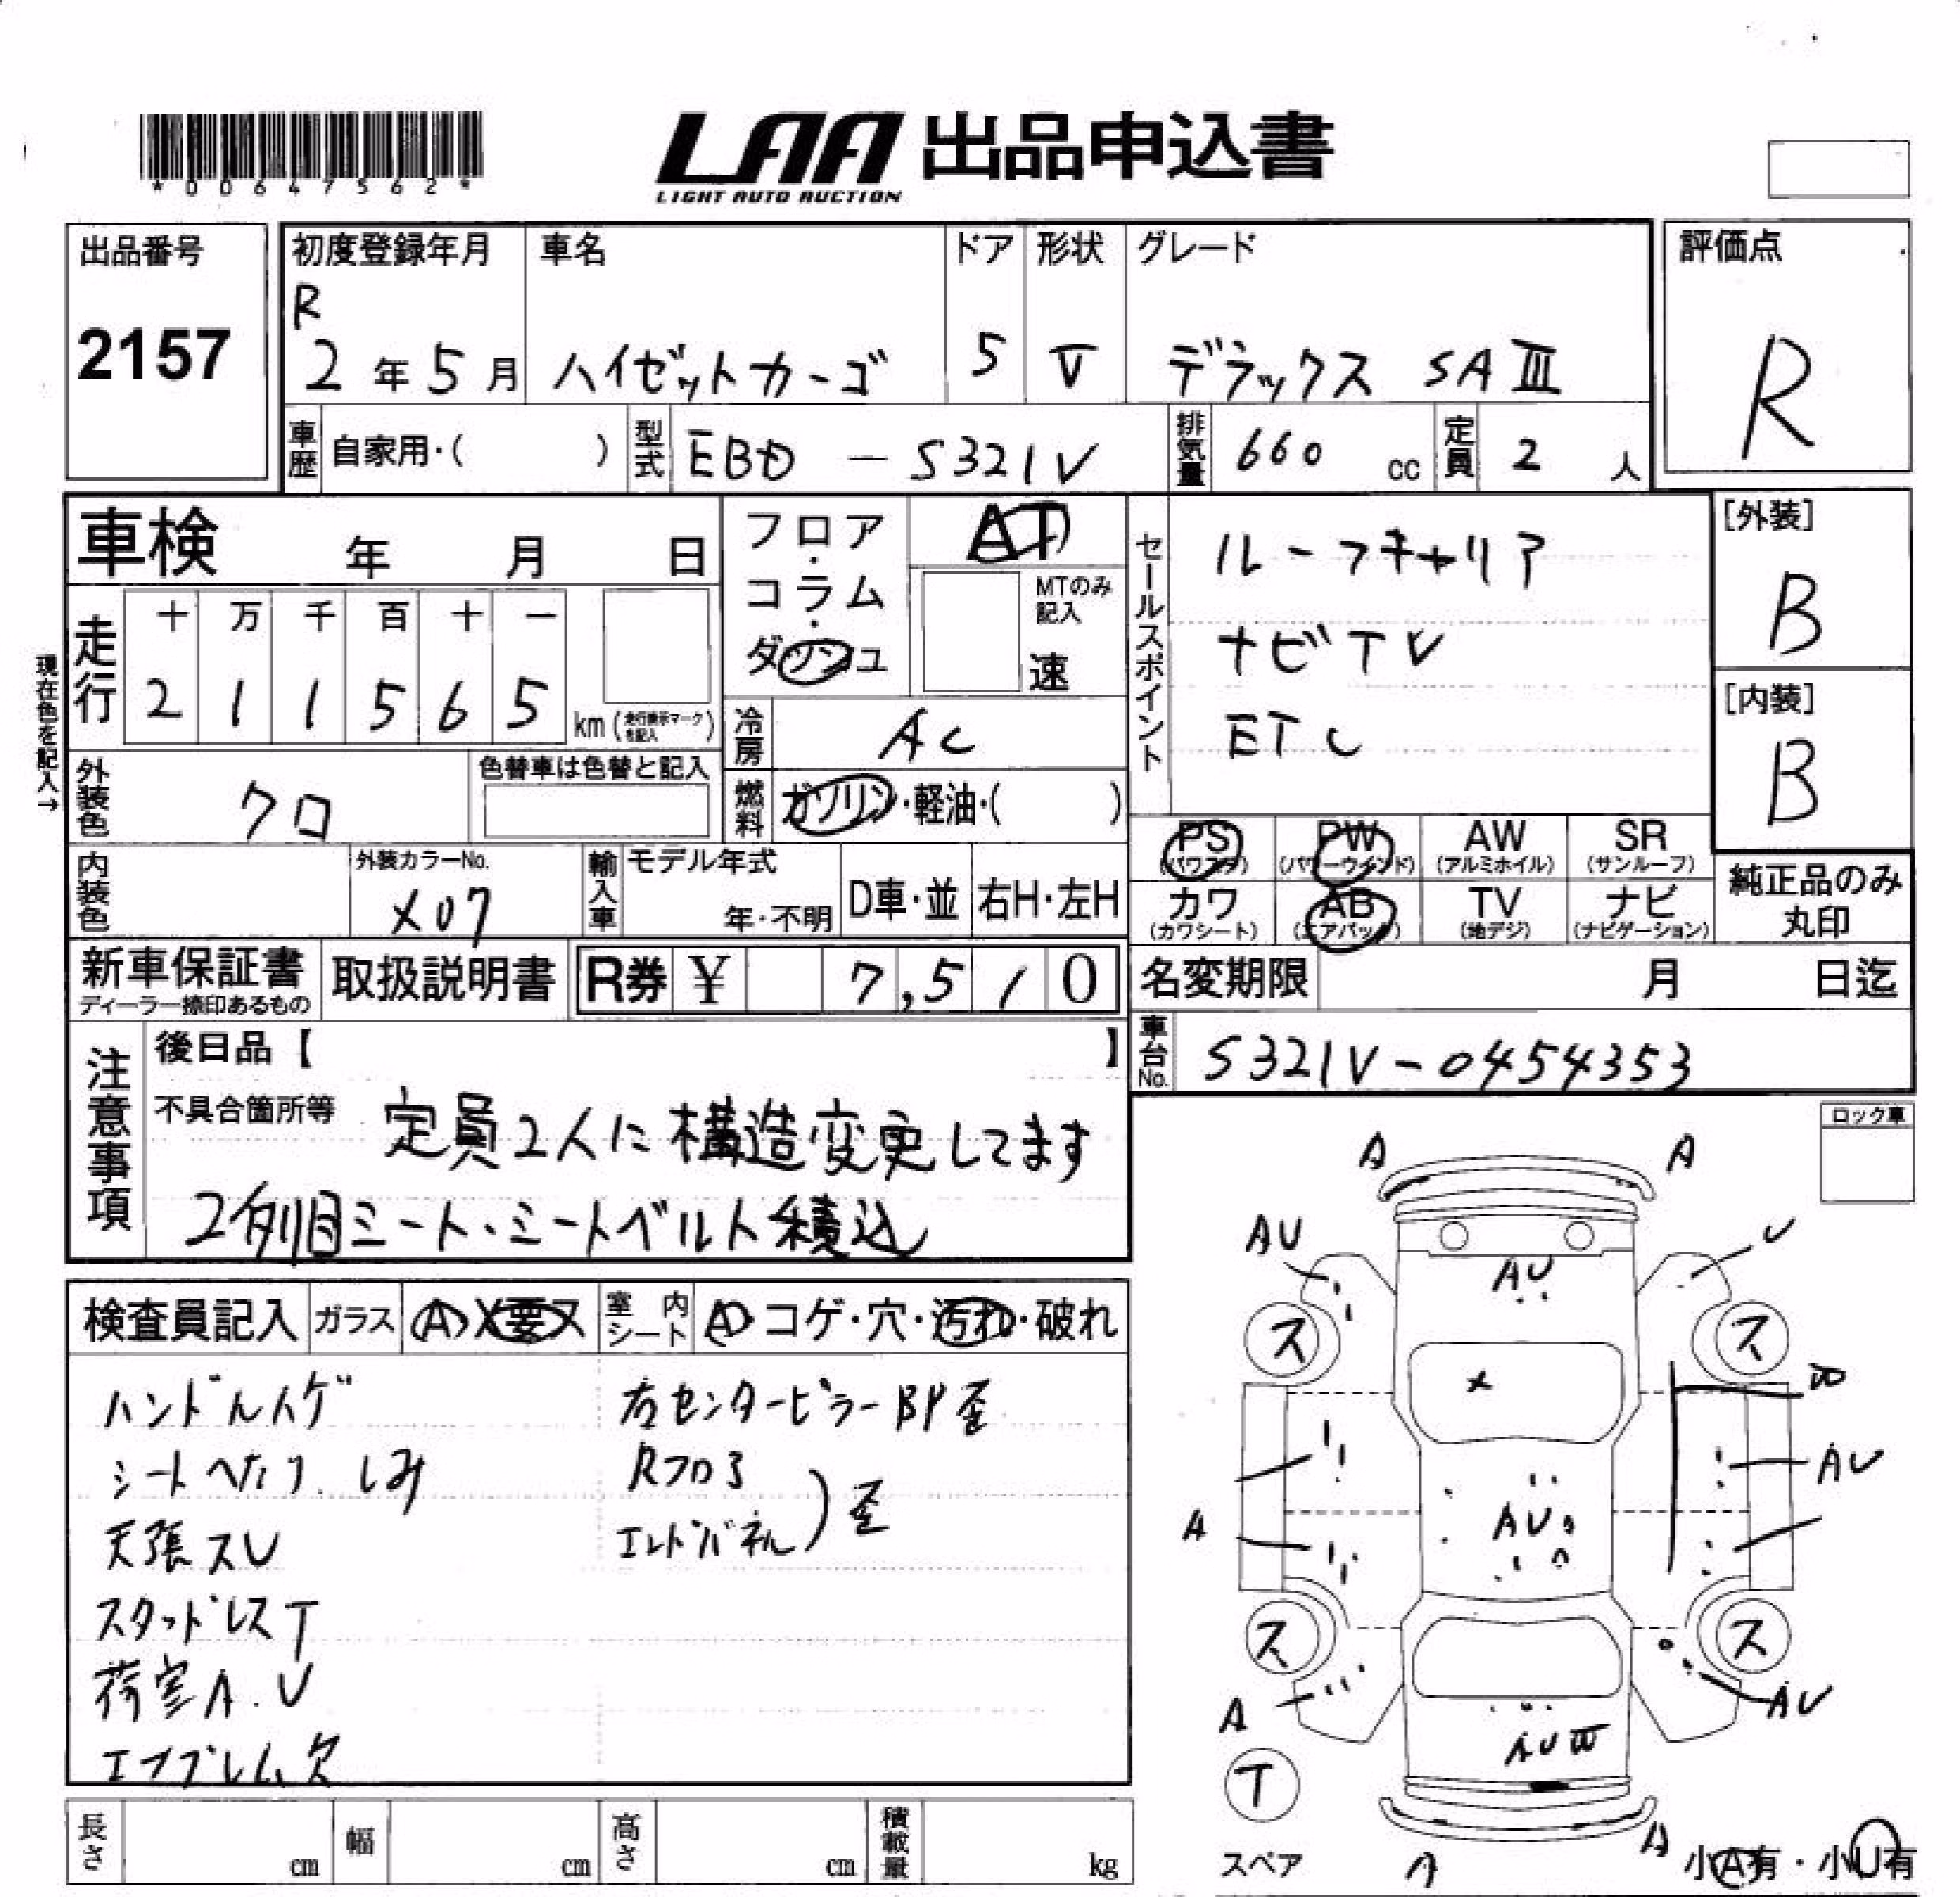 *00647562*
LAA 出品申込書
LIGHT AUTO AUCTION
出品番号
2157
初度登録年月
R
2年5月
車名
ハイゼットカーゴ
ドア
5
形状
V
グレード
デラックス SAⅢ
評価点
R
車歴 自家用・( )
型式 EBD-S321V
排気量 660 cc
定員 2 人
車検 年 月 日
走行
十 万 千 百 十 一
2 1 1 5 6 5 km (走行表示マークを記入)
現在色を記入→
フロア・コラム・ダッシュ
AT
MTのみ記入
速
冷房 AC
燃料 ガソリン・軽油・( )
セールスポイント
ルーフキャリア
ナビTV
ETC
[外装]
B
[内装]
B
外装色 クロ
色替車は色替と記入
内装色
外装カラーNo.
X07
輸入車
モデル年式
年・不明
D車・並
右H・左H
PS (パワステ)
PW (パワーウインド)
AW (アルミホイル)
SR (サンルーフ)
カワ (カワシート)
AB (エアバッグ)
TV (地デジ)
ナビ (ナビゲーション)
純正品のみ
丸印
新車保証書
ディーラー捺印あるもの
取扱説明書
R券 ¥ 7,510
名変期限 月 日迄
車台No. S321V-0454353
注意事項
後日品【 】
不具合箇所等 定員2人に構造変更してます
2列目シート・シートベルト積込
ロック車
検査員記入
ガラス A・X要ス
室内シート A・コゲ・穴・汚れ・破れ
ハンドルハゲ
シートヘタリ、しみ
天張スレ
スタッドレスT
荷室A.U
エンブレム欠
右センターピラーBP歪
Rフロア
エンドパネル ) 歪
A A
AU U
AU
ス ス
X
W
AU
A
AU
ス ス
A
AU
AUW
T
スペア
A A
小A有・小U有
長さ cm
幅 cm
高さ cm
積載量 kg